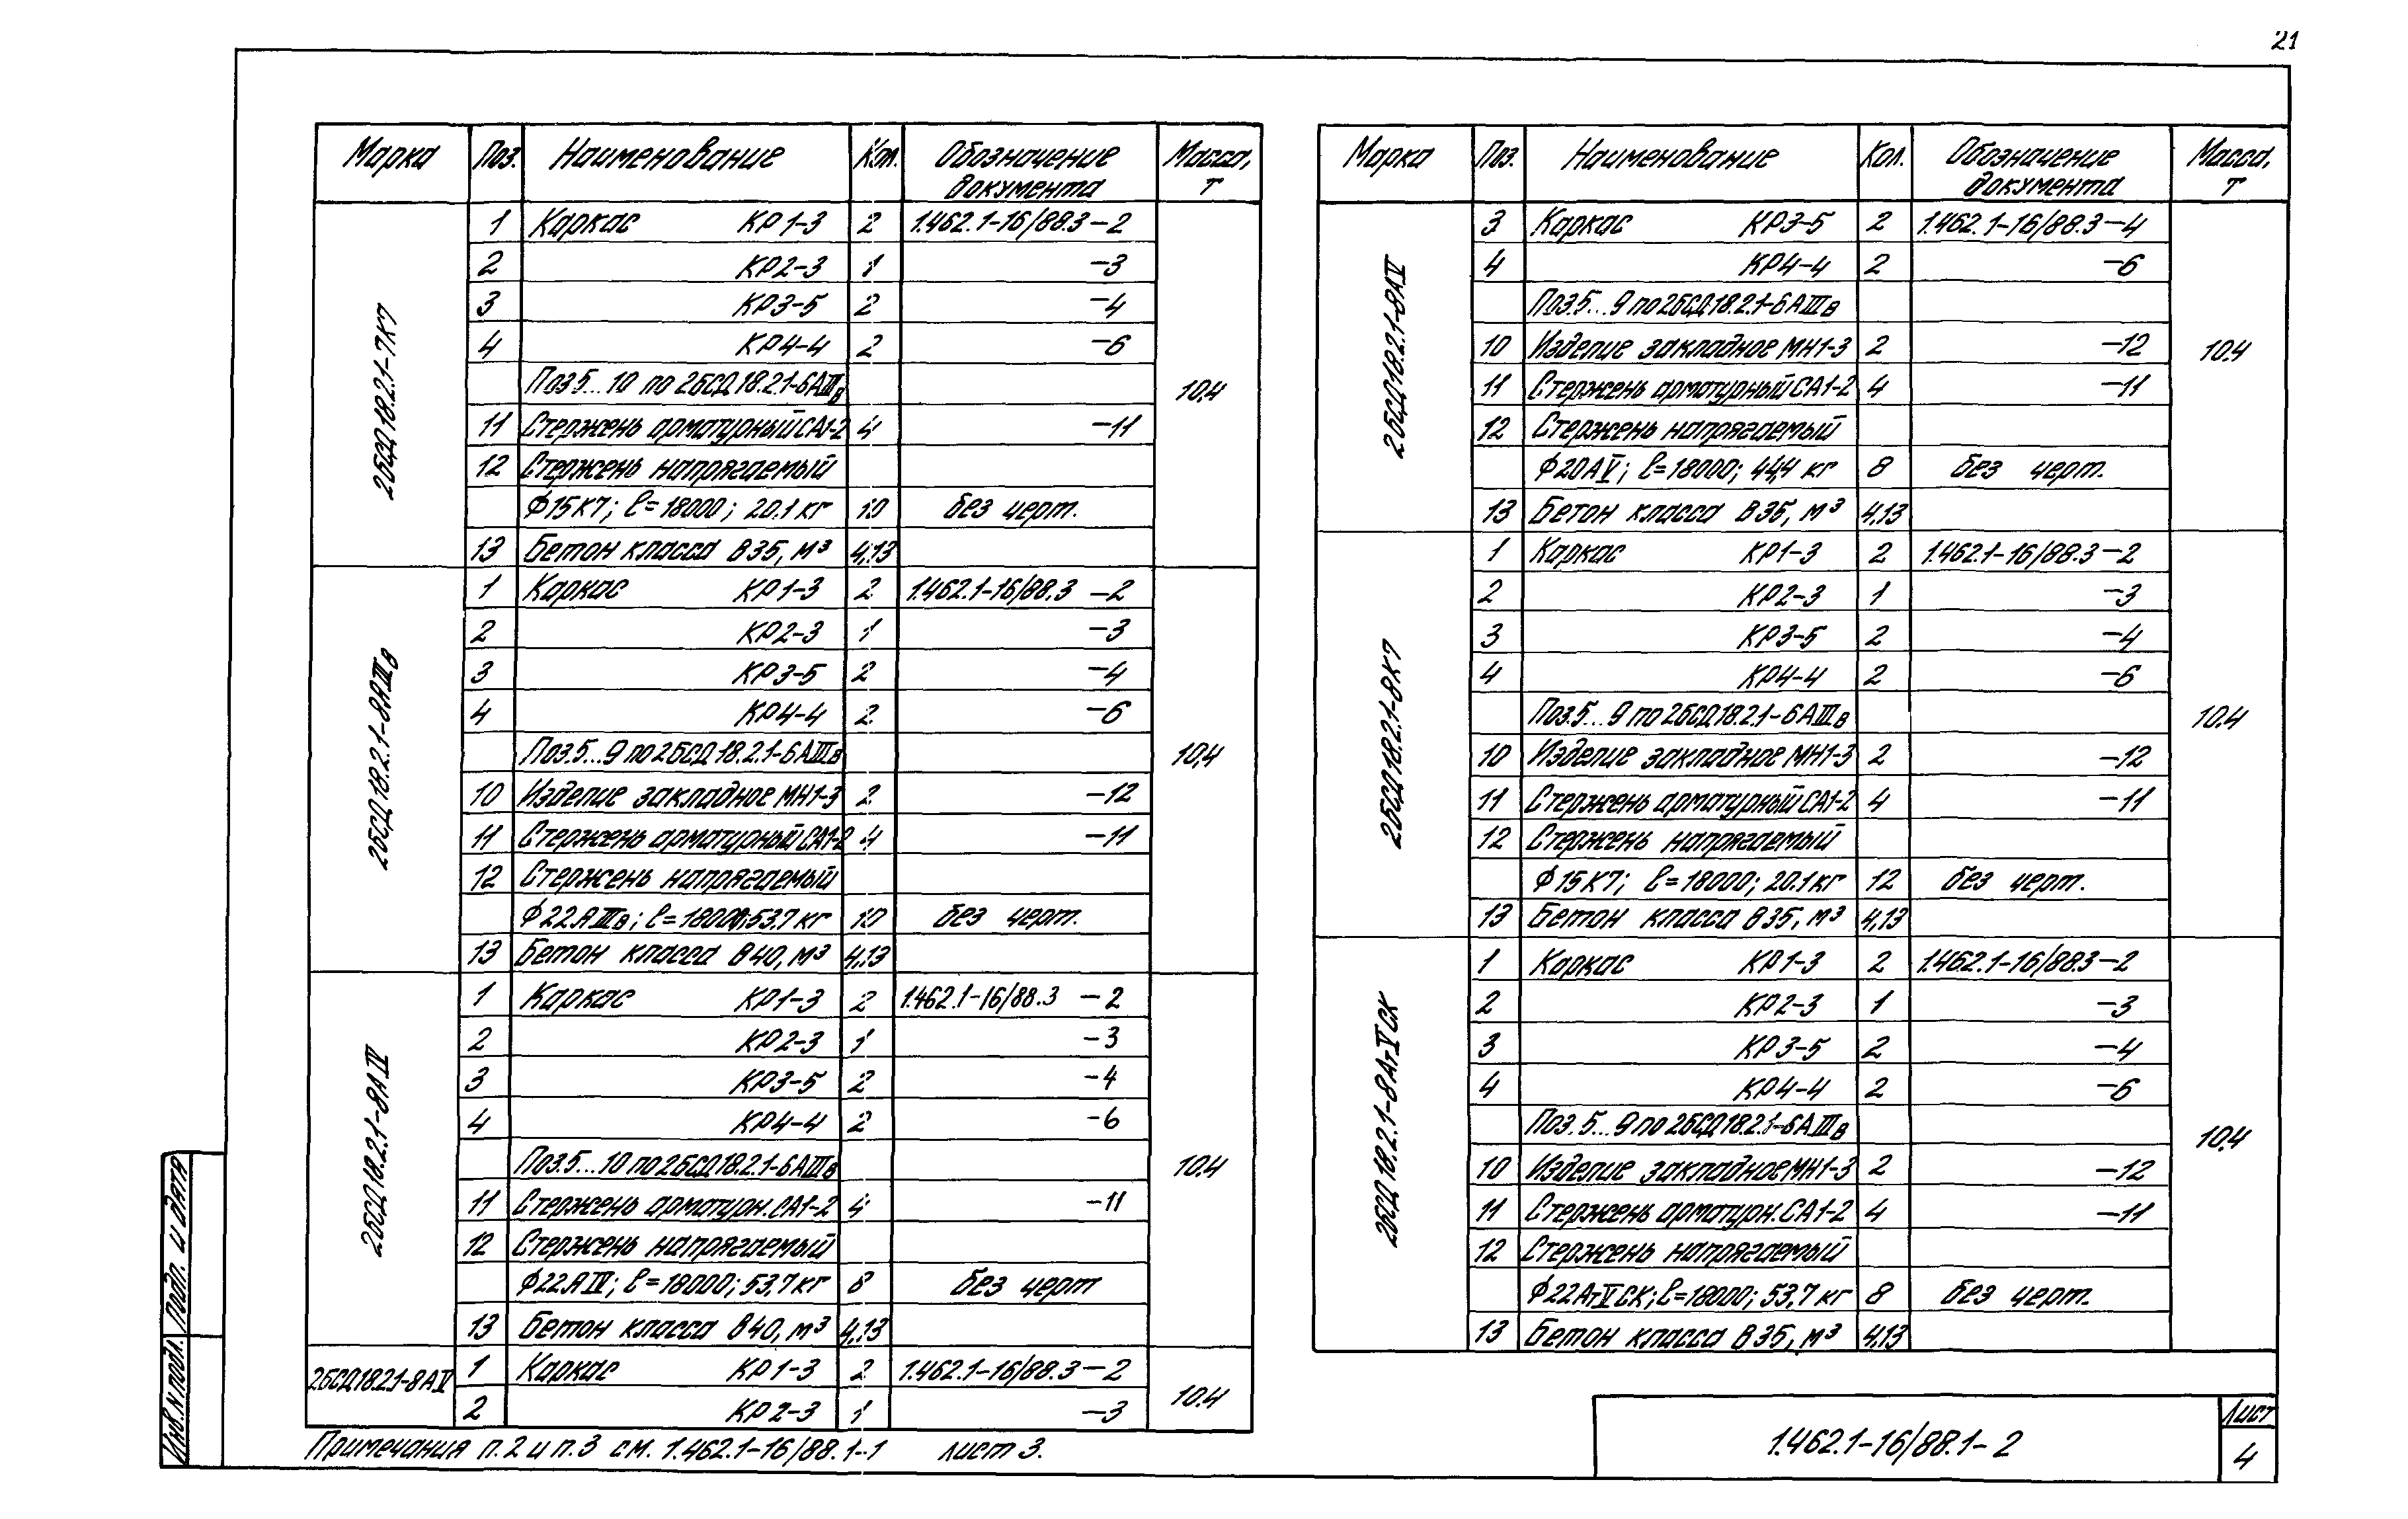 21
Марка Поз. Наименование Кол. Обозначение документа Масса, т
2БСД18.2.1-7К7
1 Каркас КР1-3 2 1.462.1-16/88.3-2
2 КР2-3 1 -3
3 КР3-5 2 -4
4 КР4-4 2 -6
Поз.5...10 по 2БСД18.2.1-6АIIIв
10.4
11 Стержень арматурный СА1-2 4 -11
12 Стержень напрягаемый
ф15К7; ℓ=18000; 20.1 кг 10 без черт.
13 Бетон класса В35, м³ 4,13
2БСД18.2.1-8АIIIв
1 Каркас КР1-3 2 1.462.1-16/88.3 -2
2 КР2-3 1 -3
3 КР3-5 2 -4
4 КР4-4 2 -6
Поз.5...9 по 2БСД18.2.1-6АIIIв
10,4
10 Изделие закладное МН1-3 2 -12
11 Стержень арматурный СА1-2 4 -11
12 Стержень напрягаемый
ф22АIIIв; ℓ=18000; 53,7 кг 10 без черт.
13 Бетон класса В40, м³ 4,13
2БСД18.2.1-8АIV
1 Каркас КР1-3 2 1.462.1-16/88.3 -2
2 КР2-3 1 -3
3 КР3-5 2 -4
4 КР4-4 2 -6
Поз.5...10 по 2БСД18.2.1-6АIIIв
10.4
11 Стержень арматурн. СА1-2 4 -11
12 Стержень напрягаемый
ф22АIV; ℓ=18000; 53,7 кг 8 без черт
13 Бетон класса В40, м³ 4,13
2БСД18.2.1-8АV
1 Каркас КР1-3 2 1.462.1-16/88.3-2
2 КР2-3 1 -3
10.4
Примечания п.2 и п.3 см. 1.462.1-16/88.1-1 лист 3.
Марка Поз. Наименование Кол. Обозначение документа Масса, т
2БСД18.2.1-8АV
3 Каркас КР3-5 2 1.462.1-16/88.3-4
4 КР4-4 2 -6
Поз.5...9 по 2БСД18.2.1-6АIIIв
10 Изделие закладное МН1-3 2 -12
10.4
11 Стержень арматурный СА1-2 4 -11
12 Стержень напрягаемый
ф20АV; ℓ=18000; 44,4 кг 8 без черт.
13 Бетон класса В35, м³ 4,13
2БСД18.2.1-8К7
1 Каркас КР1-3 2 1.462.1-16/88.3-2
2 КР2-3 1 -3
3 КР3-5 2 -4
4 КР4-4 2 -6
Поз.5...9 по 2БСД18.2.1-6АIIIв
10.4
10 Изделие закладное МН1-3 2 -12
11 Стержень арматурный СА1-2 4 -11
12 Стержень напрягаемый
ф15К7; ℓ=18000; 20.1 кг 12 без черт.
13 Бетон класса В35, м³ 4,13
2БСД18.2.1-8АтVСК
1 Каркас КР1-3 2 1.462.1-16/88.3-2
2 КР2-3 1 -3
3 КР3-5 2 -4
4 КР4-4 2 -6
Поз.5...9 по 2БСД18.2.1-6АIIIв
10.4
10 Изделие закладное МН1-3 2 -12
11 Стержень арматурн. СА1-2 4 -11
12 Стержень напрягаемый
ф22АтVСК; ℓ=18000; 53,7 кг 8 без черт.
13 Бетон класса В35, м³ 4,13
1.462.1-16/88.1-2
Лист
4
Инв.N подл. Подп. и дата